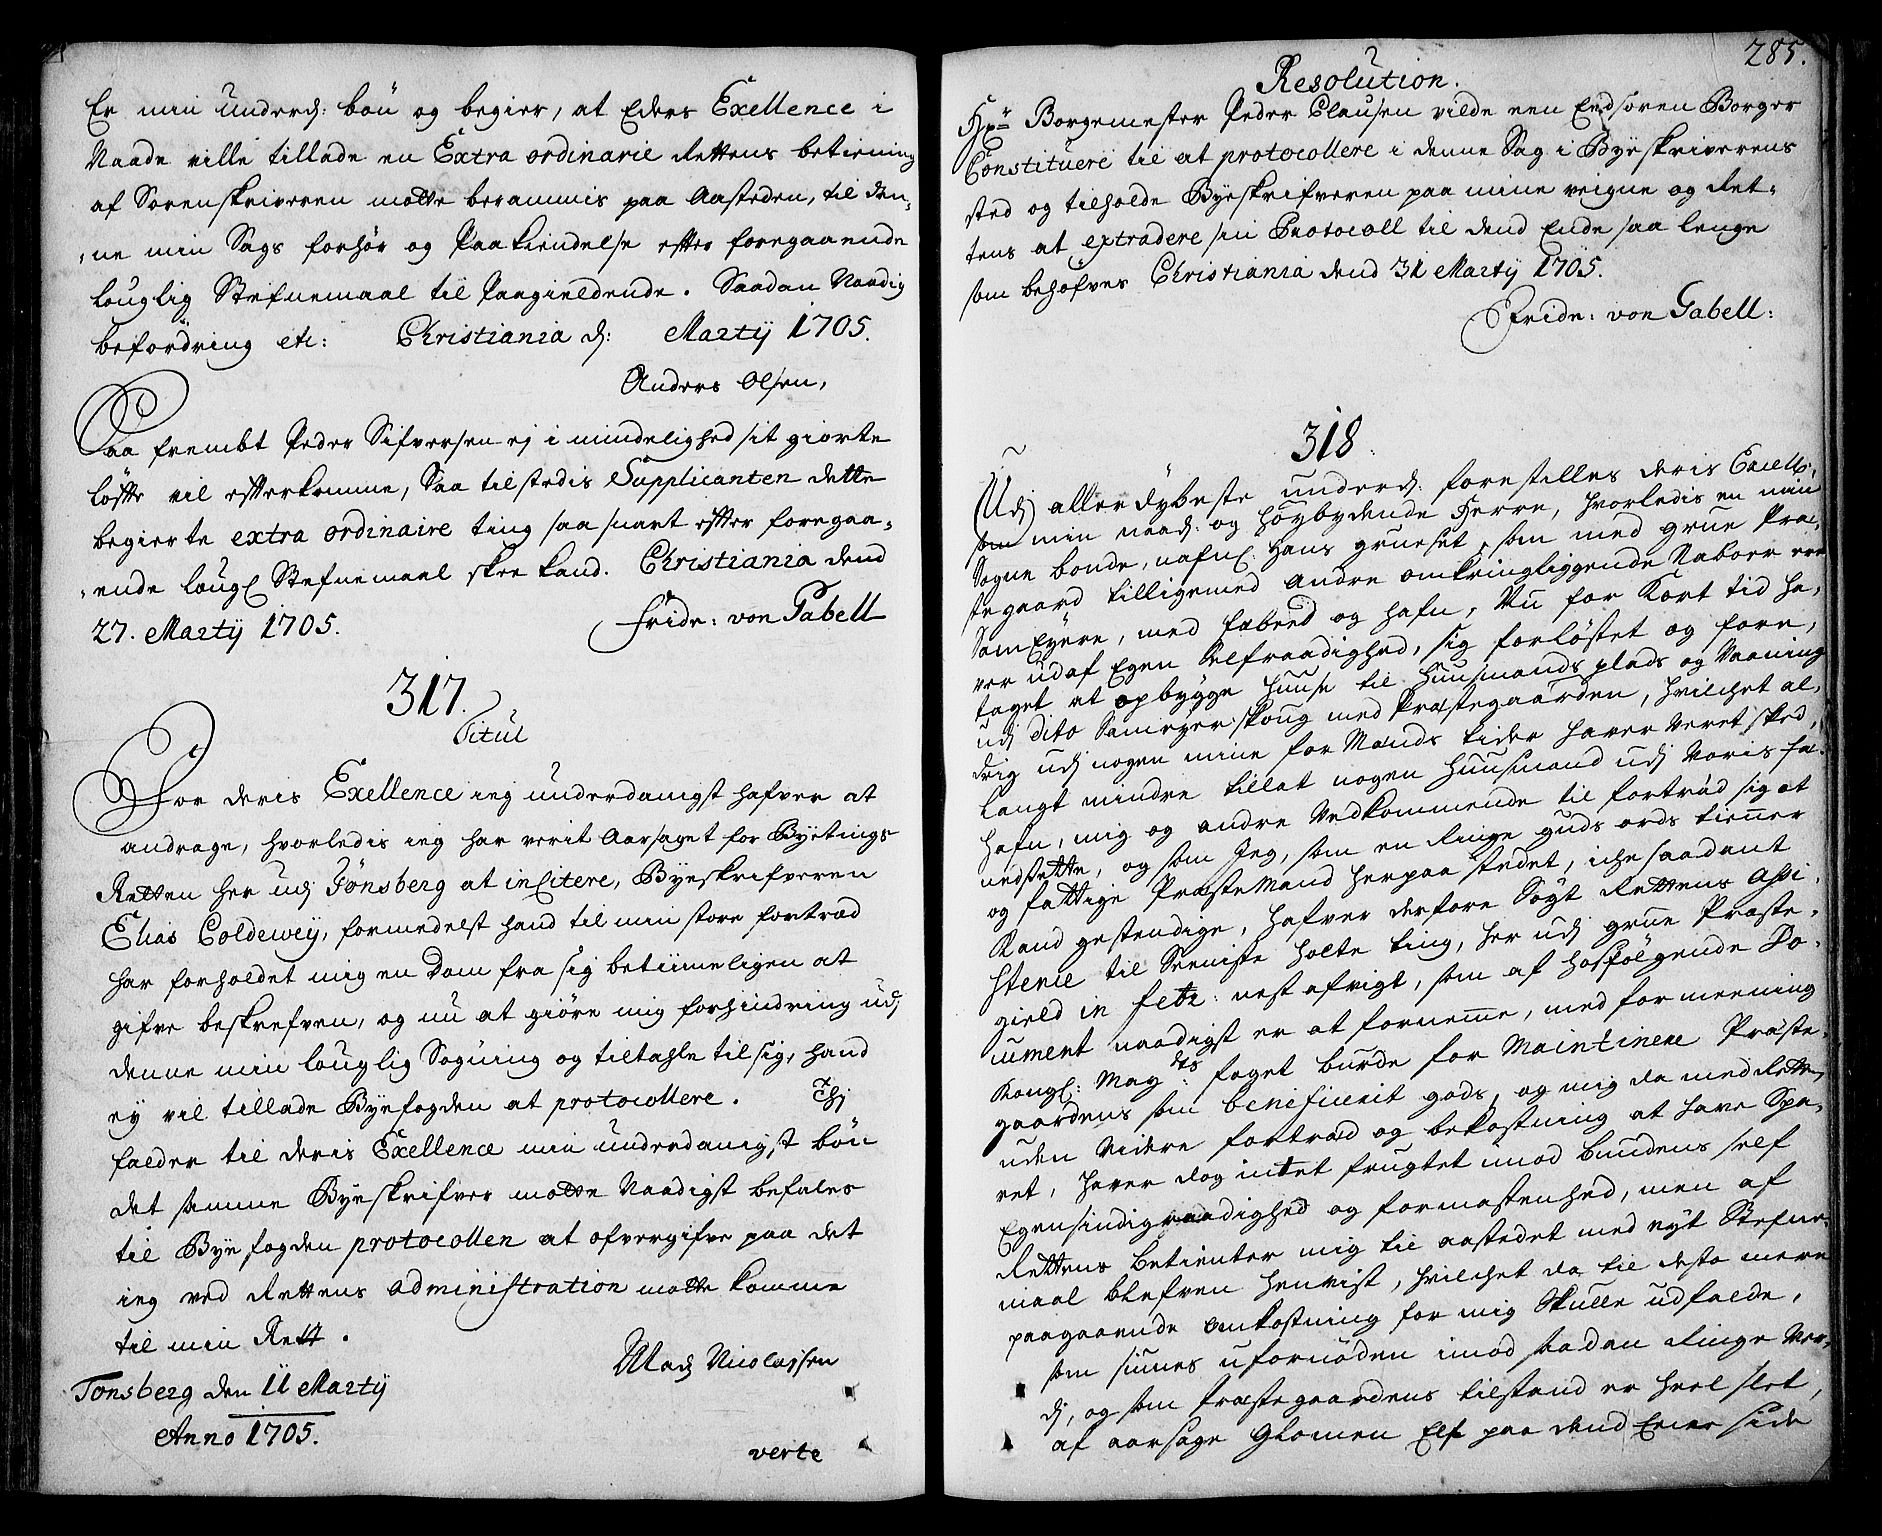 Er min underd: bøn og begier, at Eders Exellence i
Naade ville tillade en Extra ordinarie Rettens betiening
af Sorenskriveren motte berammis paa Aasteden, til den,
,ne min Sags forhør og Paakiendelse effter foregaaende
louglig Stefnemaal til Paagieldende. Saadan Naadig
befordring etc: Christiania d: Martÿ 1705.
Anders Olsen,
Saa frembt Peder Sifversen ej i mindelighed sit giorte
løffte vil effterkomme, Saa tilstedis Supplicanten dette
begierte extra ordinaire ting saa snart effter foregaa,
,ende lougl Stefnemaal skee kand. Christiania dend
27. Martÿ 1705. Fridr: von Gabell
317.
Titul
For deris Exellence ieg underdanigst hafver at
andrage, hvorledis ieg har verit Aarsaget for Byetings
Retten her udj Tönsberg at incitere, Byeskrifveren
Elias Coldewey, formedelst hand til min store fortræd
har forholdet mig en Dom fra sig betiimeligen at
gifve beskrefven, og nu at giöre mig forhindring udj
denne min louglig Søgning og tiltahle til sig, hand
ey vil tillade Byefogden at protocollere. Thj
falder til deris Exellence min underdanigst bön
det samme Byeskrifver motte Naadigst befales
til Byefogden protocollen at ofvergifve paa det
ieg ved Rettens administration motte komme
til min Rett.
Mads Nicolassen
Tonsberg den 11 Martÿ
Anno 1705.
verte
285.
Resolution.
Hr Borgemester Peder Clausen vilde een Eedsoren Borger
Constituere til at protocollere i denne Sag i Byeskriverens
sted og tilholde Byeskrifveren paa mine veigne og Ret,
tens at extradere sin Protocoll til dend Ende saa lenge
som behøfves Christiania dend 31 Martÿ 1705.
Fridr: von Gabell:
318.
Udj allerdybeste underd: forestilles deris Excell:
som min naad: og høybydende Herre, hvorledis en min
Sogne bonde, nafnl: Hans grueset, som med grue Præ,
stegaard tilligemed andre omkringliggende Naboer ere
SamEyere, med fæbeed og hafn, Nu for Kort tid ha,
ver udaf Egen Selfraadighed, sig forløstet og fore,
taget at opbygge Huuse til Huusmands plads og Vaaning
udj dito Sameyer skoug med Præstegaarden, hvilchet al,
drig udj nogen mine for Mænds tider haver veret sked,
langt mindre tillat nogen Huusmand udj Voris fæ,
hafn, mig og andre Vedkommende til fortræd sig at
nedsette, og som Jeg, som en Ringe guds ords tiener
og fattige Præstemand herpaa stedet, iche saadant
Kand gestendige, hafver derfore Søgt Rettens Assi,
stence til Seeniste holte ting, her udj grue Præste,
gield in Febr: nest afvigt, som af hosfølgende Do,
cument naadigst er at fornemme, med formeening
Kongl: Mayts: foget burde for Maintinere Præste,
gaardens som beneficerit gods, og mig da med Retten
uden Videre fortræd og bekostning at have Spa,
ret, haver dog intet frugtet imod bundens self
Egensindigraadighed og formastenhed, men af
Rettens betienter mig til aastedet med nyt Stefne,
maal blefven henvist, hvilchet da til desto meere
paagaaende omkostning for mig Skulle udfalde,
som siunes ufornøden imod saadan Ringe Ver,
dj, og som Præstegaardens tilstand er heel slet,
af aarsage Glomen Elf paa dend Eene side